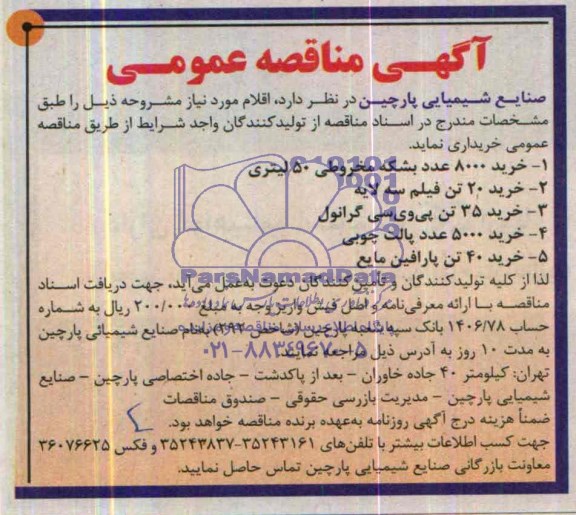 آگهـی مناقصه عمومـی
صنایع شیمیایی پارچین در نظر دارد، اقلام مورد نیاز مشروحه ذیل را طبق
مشخصات مندرج در اسناد مناقصه از تولیدکنندگان واجد شرایط از طریق مناقصه
عمومی خریداری نماید.
۱- خرید ۸۰۰۰ عدد بشکه مخروطی ۵۰ لیتری
۲- خرید ۲۰ تن فیلم سه لایه
۳- خرید ۳۵ تن پی‌وی‌سی گرانول
۴- خرید ۵۰۰۰ عدد پالت چوبی
۵- خرید ۴۰ تن پارافین مایع
ParsNamadData
لذا از کلیه تولیدکنندگان و تأمین‌کنندگان دعوت به‌عمل می‌آید، جهت دریافت اسناد
مناقصه با ارائه معرفی‌نامه و اصل فیش واریز وجه به مبلغ ۲۰۰/۰۰۰ ریال به شماره
حساب ۱۴۰۶/۷۸ بانک سپه شعبه پارچین (شاخص ۲۹۲) بنام صنایع شیمیائی پارچین
به مدت ۱۰ روز به آدرس ذیل مراجعه نمایند.
۰۲۱-۸۸۳۴۹۶۷۰-۵
تهران: کیلومتر ۴۰ جاده خاوران - بعد از پاکدشت - جاده اختصاصی پارچین - صنایع
شیمیایی پارچین - مدیریت بازرسی حقوقی - صندوق مناقصات
ضمناً هزینه درج آگهی روزنامه به‌عهده برنده مناقصه خواهد بود.
جهت کسب اطلاعات بیشتر با تلفن‌های ۳۵۲۴۳۱۶۱-۳۵۲۴۳۸۳۷ و فکس ۳۶۰۷۶۶۲۵
معاونت بازرگانی صنایع شیمیایی پارچین تماس حاصل نمایید.